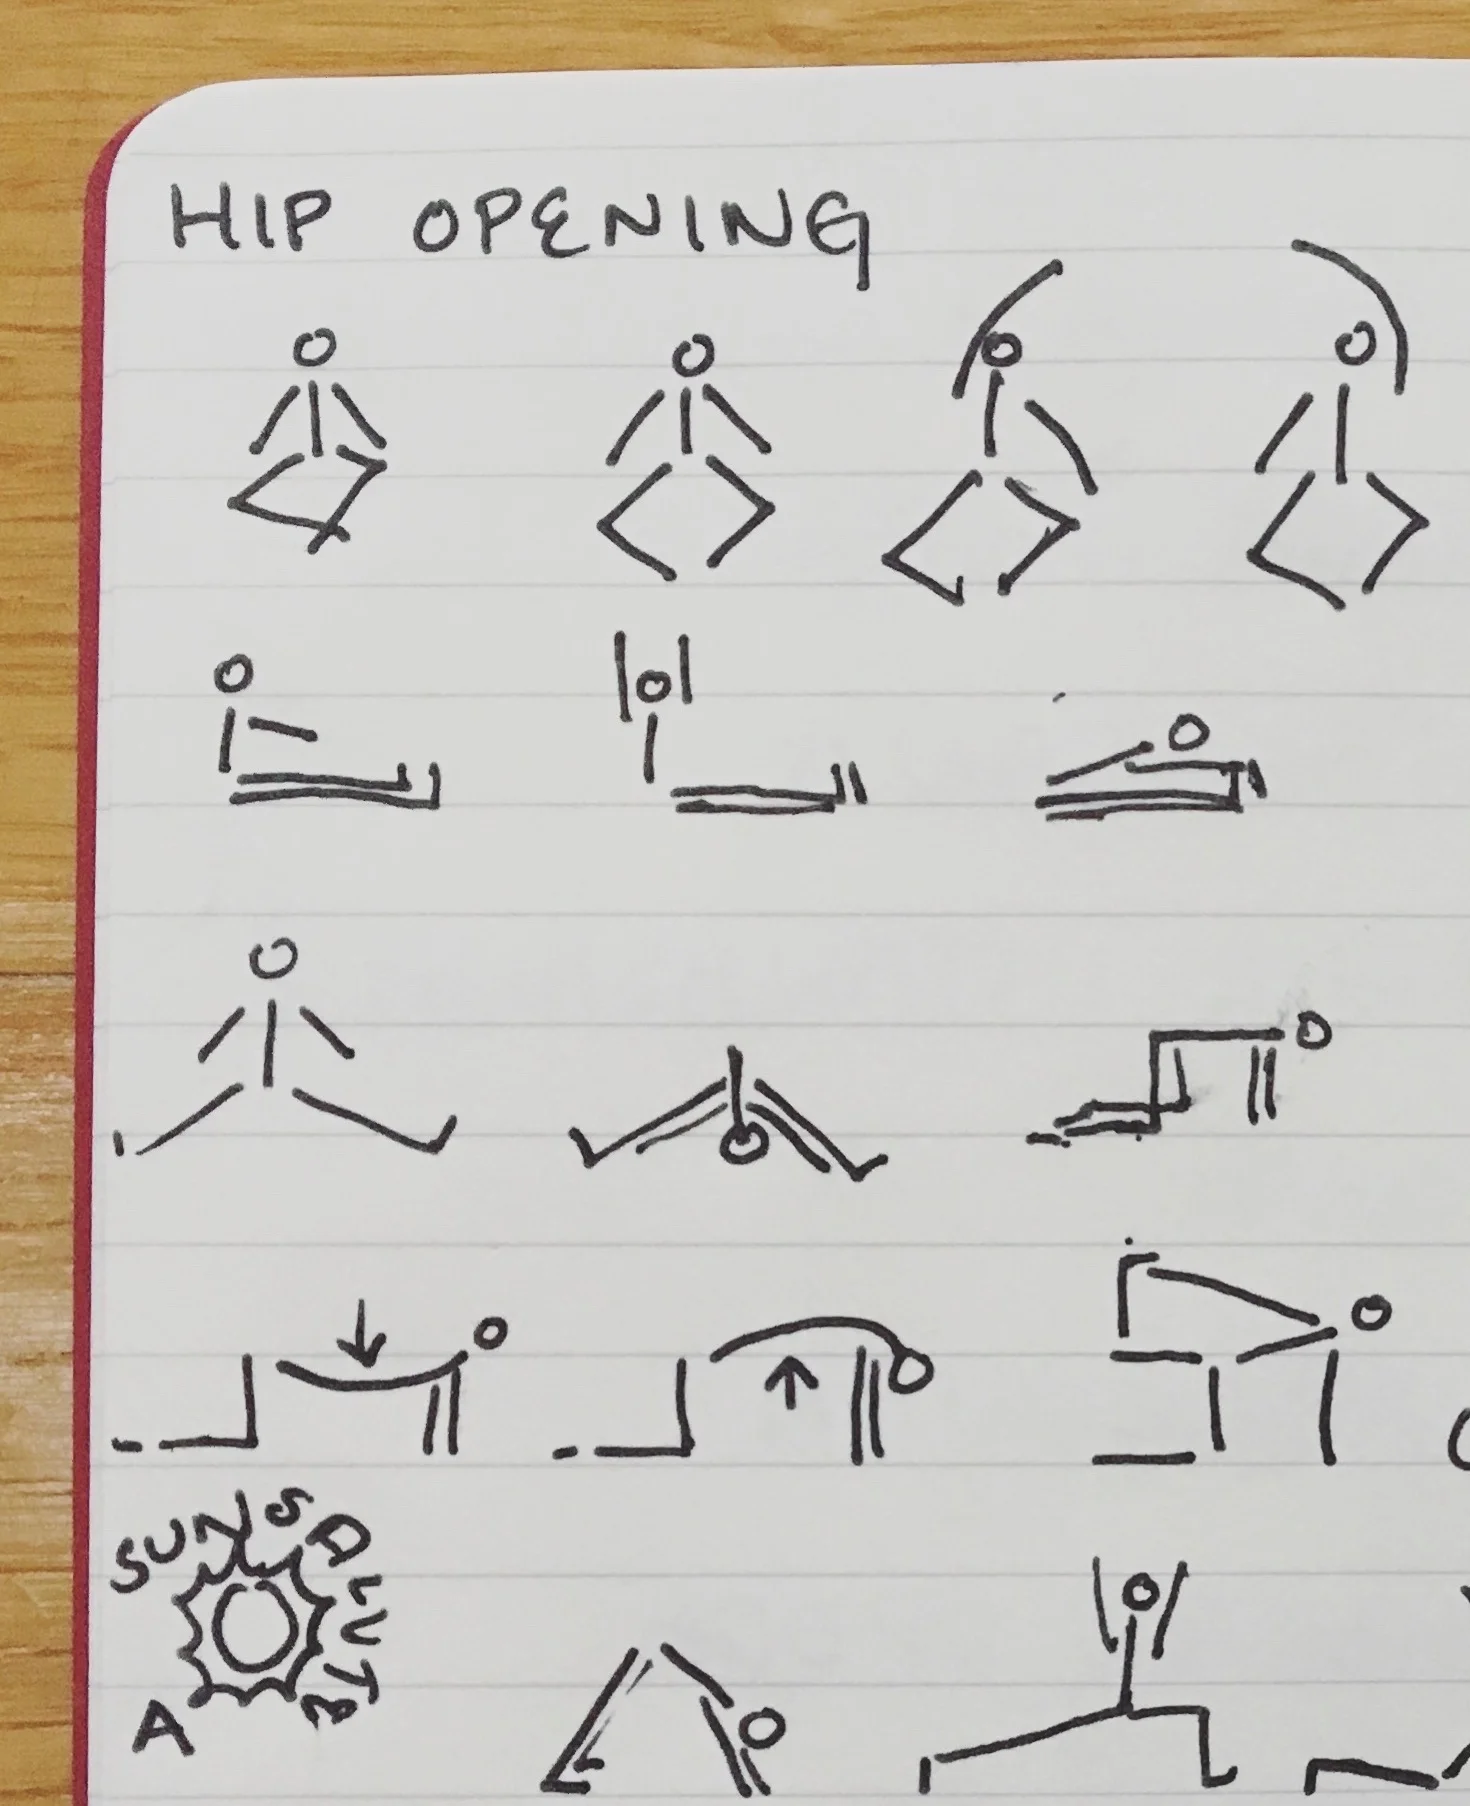 HIP OPENING
SUN SALUTS
A